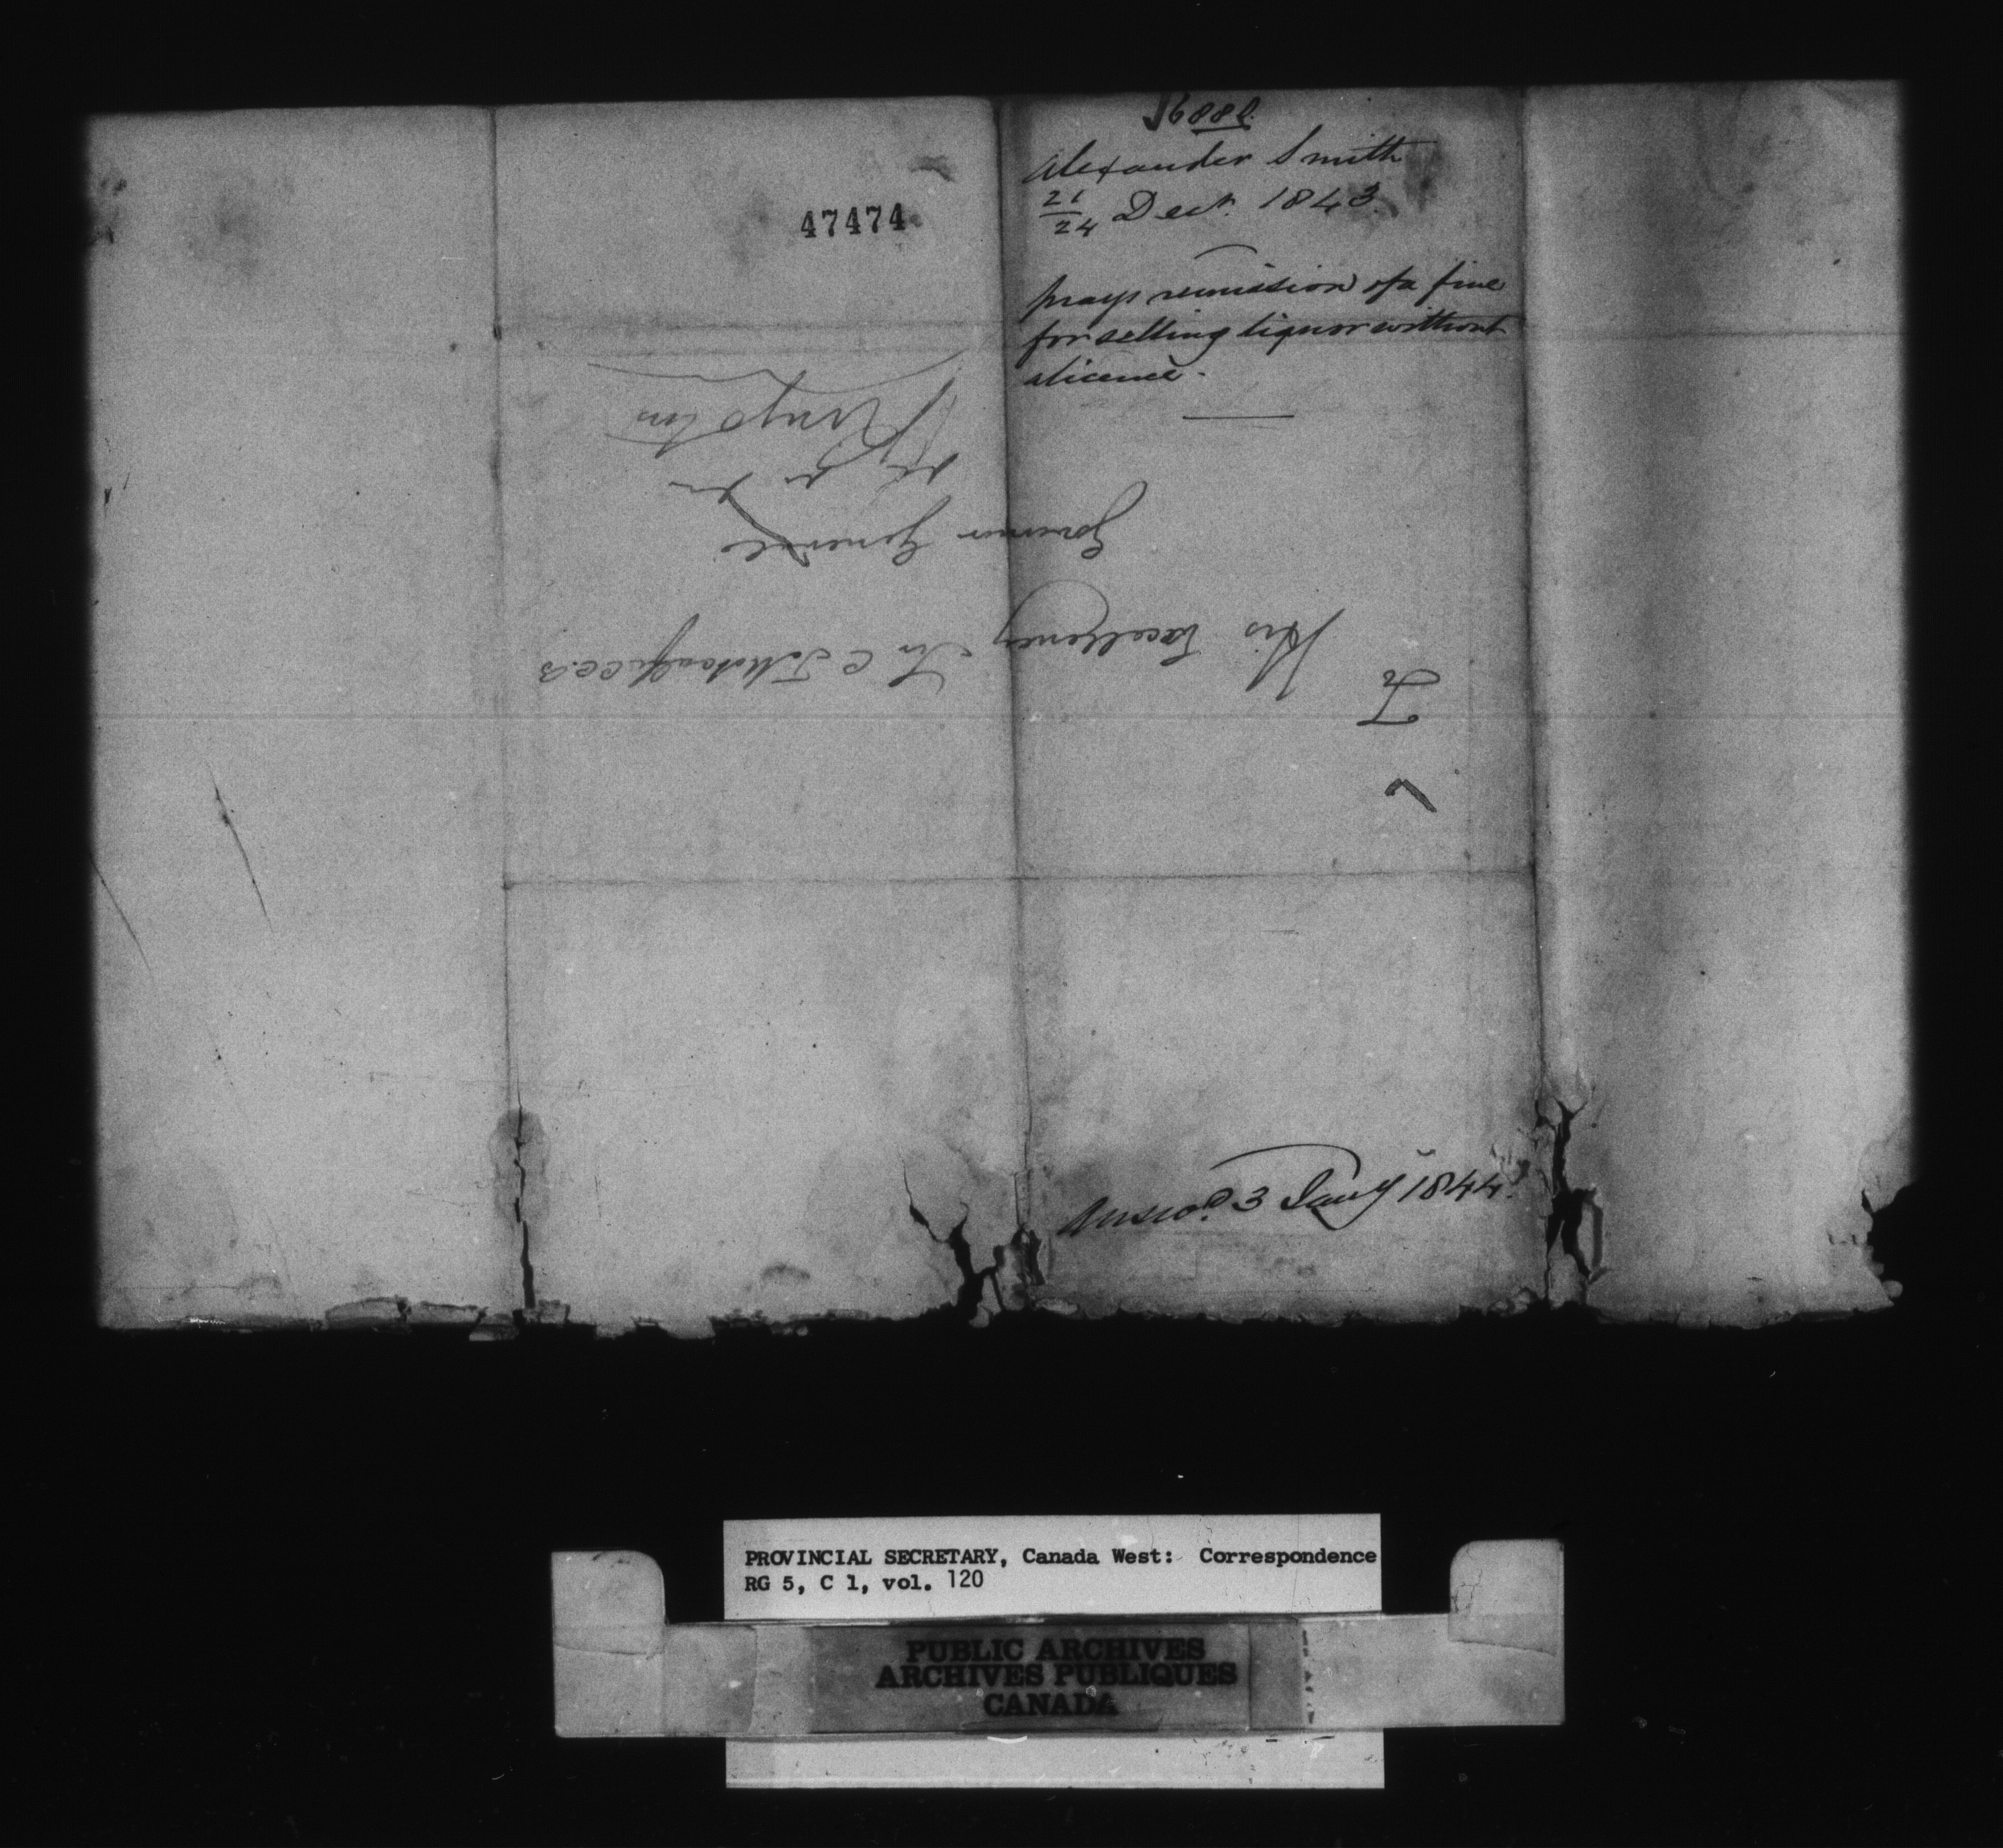 6880.
Alexander Smith
21/24 Decr. 1843.
47474
prays remission of a fine
for selling liquor without
a licence.
To
His Excellency Sir C T Metcalfe
Governor General
Kingston
Answd. 3 Jany 1844.
PROVINCIAL SECRETARY, Canada West: Correspondence
RG 5, C 1, vol. 120
PUBLIC ARCHIVES
ARCHIVES PUBLIQUES
CANADA